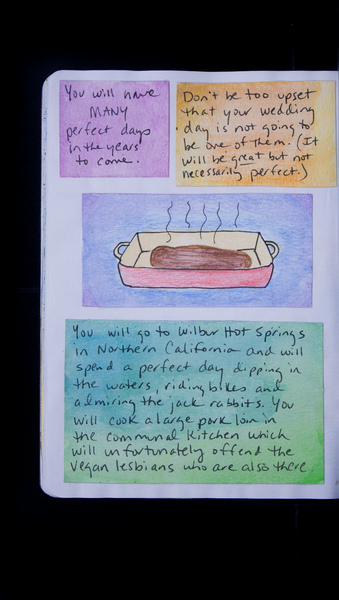 You will have
MANY
perfect days
in the years
to come.
Don't be too upset
that your wedding
day is not going to
be one of them. (It
will be great but not
necessarily perfect.)
You will go to Wilbur Hot Springs
in Northern California and will
spend a perfect day dipping in
the waters, riding bikes and
admiring the jack rabbits. You
will cook a large pork loin in
the communal kitchen which
will unfortunately offend the
vegan lesbians who are also there